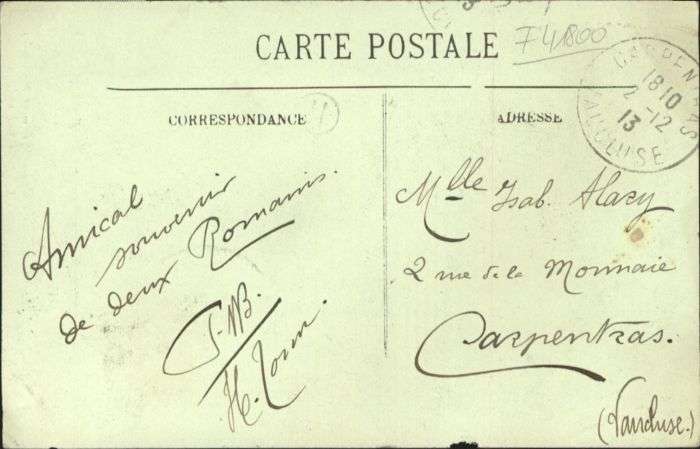 CARTE POSTALE
F41800
CARPENTRAS
18 10
2-12
13
VAUCLUSE
CORRESPONDANCE
ADRESSE
Amical
souvenir
de deux Romanis.
H.
Mlle Isab. Alazy
2 rue de la Monnaie
Carpentras.
(Vaucluse.)